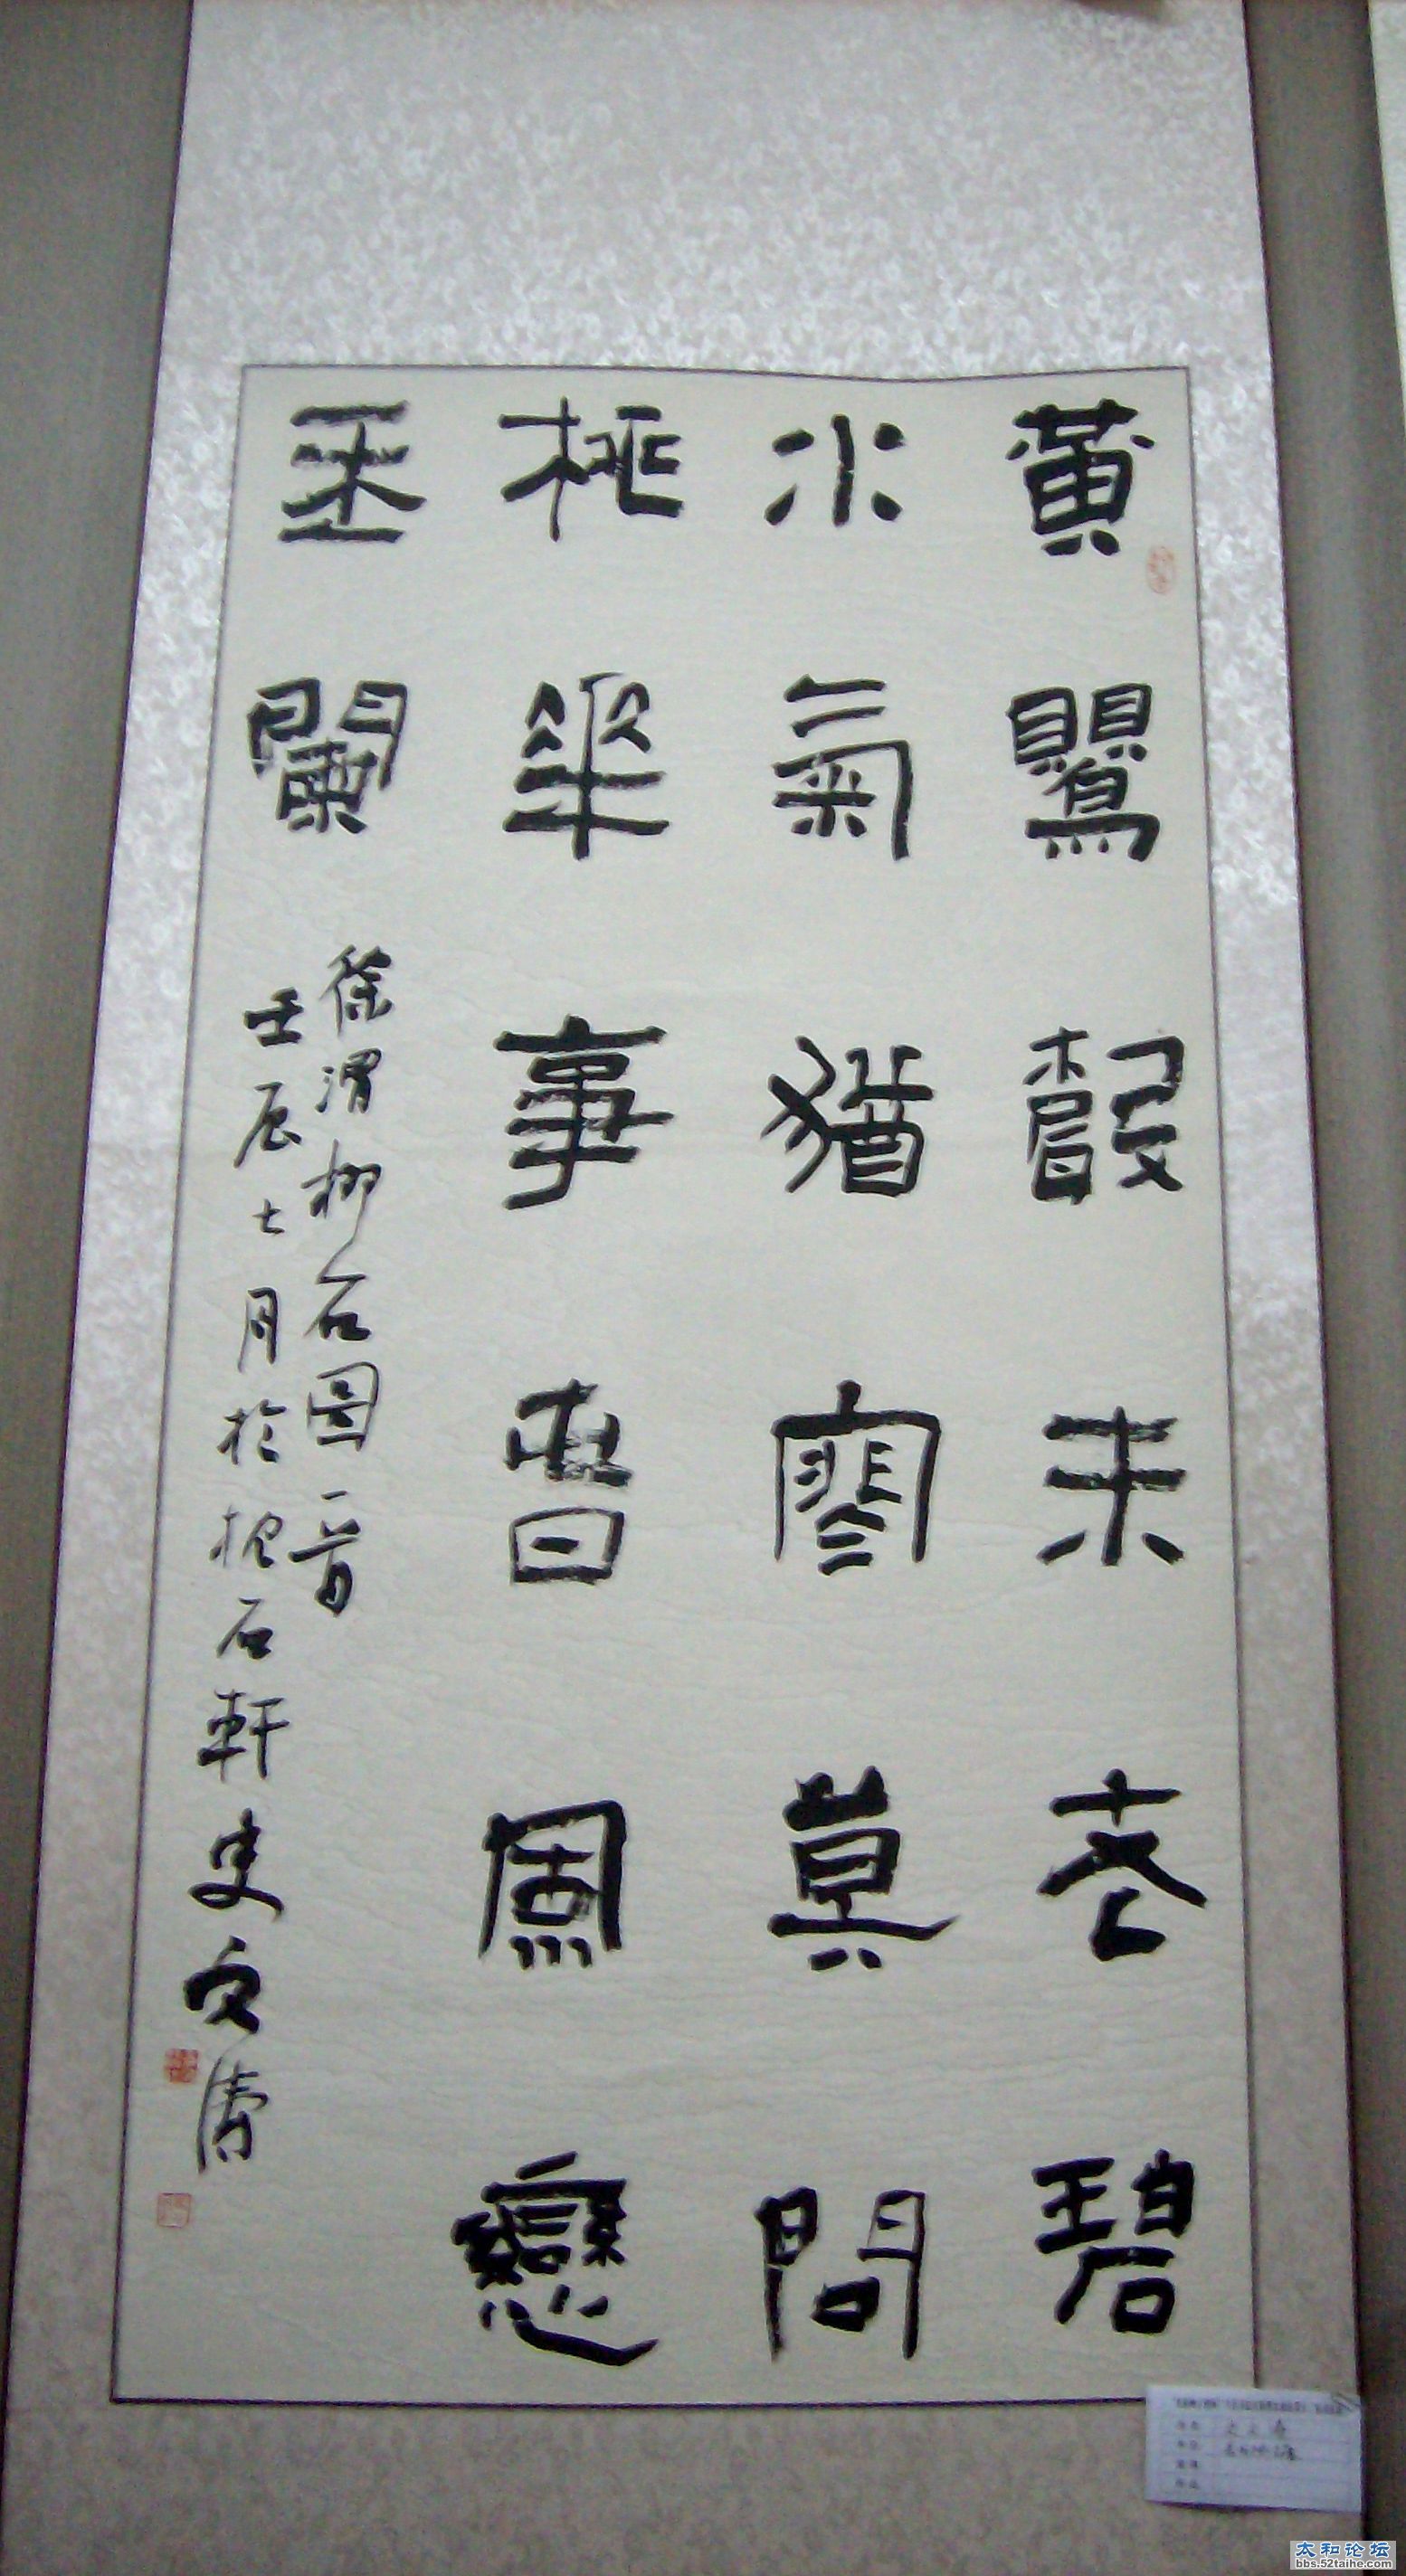 黃鸎聲未老碧
水氣猶寒莫問
桃華事春風戀
玉闌
徐渭柳石圖一首
壬辰七月於石軒史文濤
太和论坛
bbs.52taihe.com